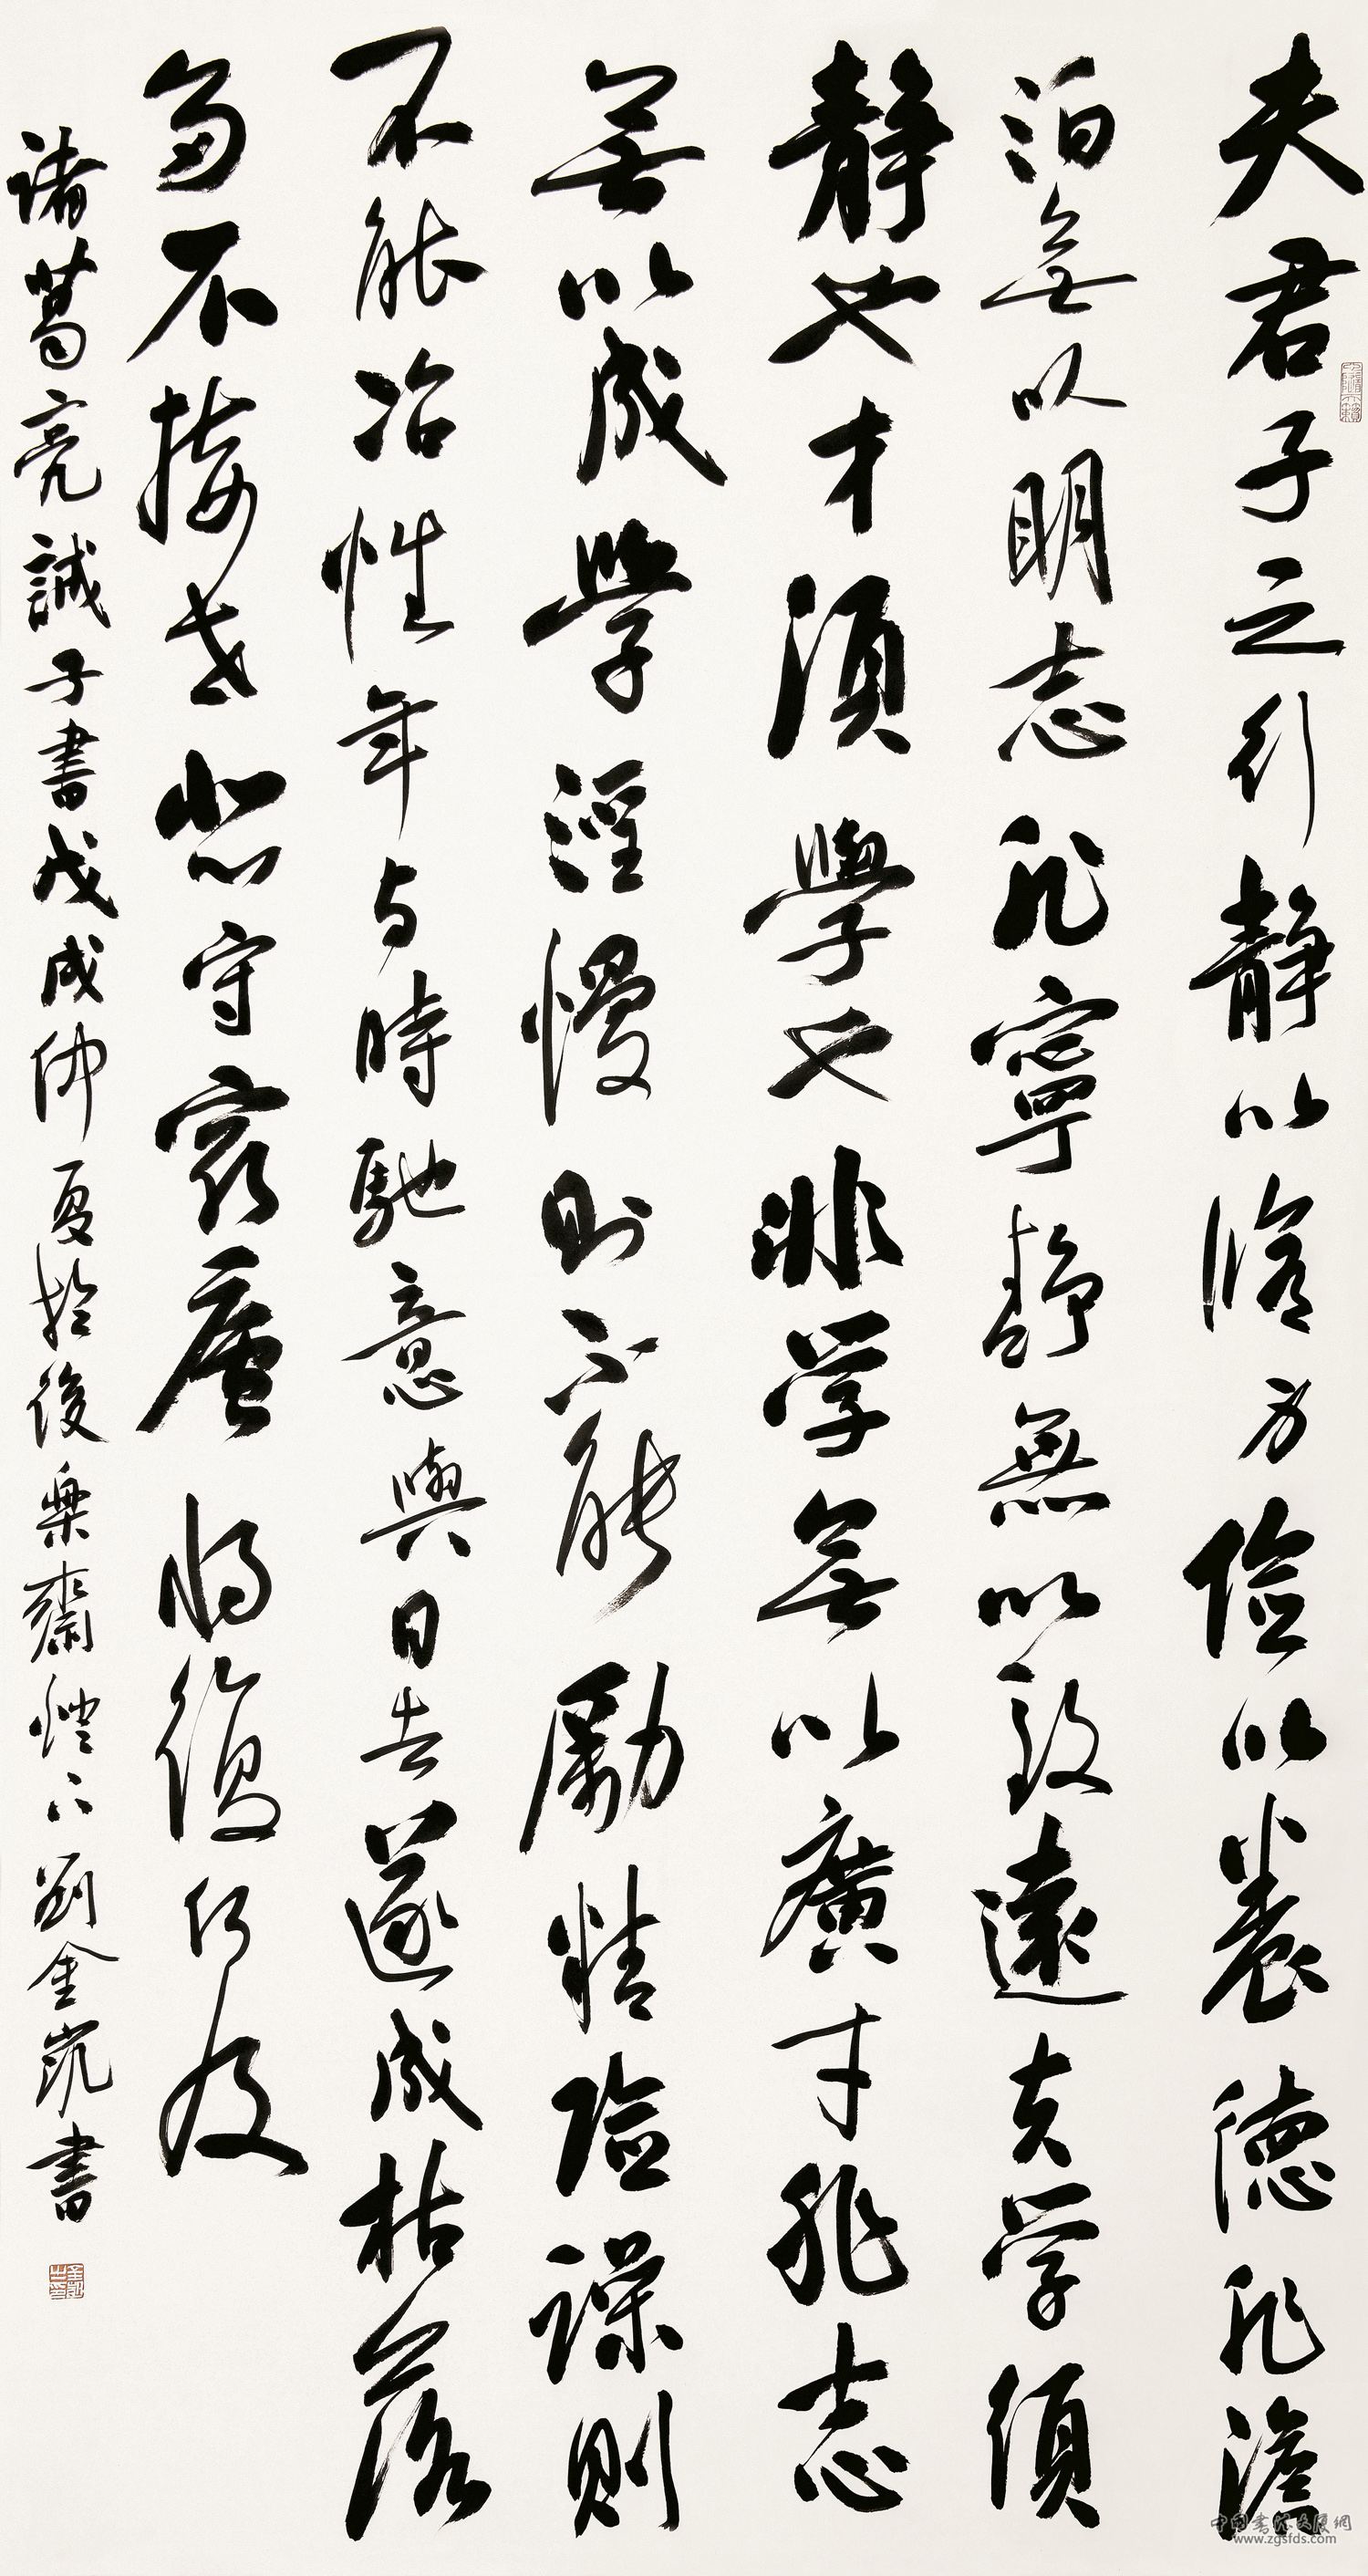 夫君子之行靜以脩身儉以養德非澹
泊無以明志非寧靜無以致遠夫學須
靜也才須學也非學無以廣才非志
無以成學淫慢則不能勵精險躁則
不能冶性年与時馳意與日去遂成枯落
多不接世悲守窮廬將復何及
諸葛亮誡子書戊戌仲夏於後樂齋燈下劉金凱書
中国书法大厦網
www.zgsfds.com